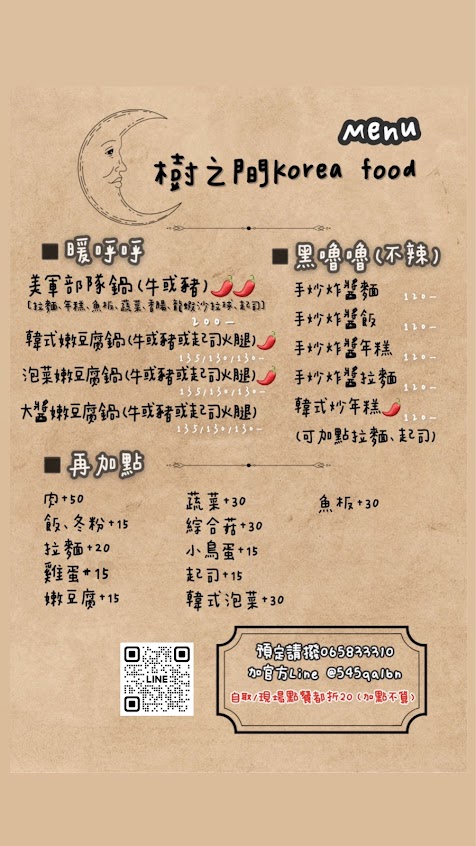 Menu
樹之間Korea food
暖呼呼
美軍部隊鍋(牛或豬)
[拉麵、年糕、魚板、蔬菜、香腸、龍蝦沙拉球、起司]
200-
韓式嫩豆腐鍋(牛或豬或起司火腿)
135/130/130-
泡菜嫩豆腐鍋(牛或豬或起司火腿)
135/130/130-
大醬嫩豆腐鍋(牛或豬或起司火腿)
135/130/130-
黑嚕嚕(不辣)
手炒炸醬麵 120-
手炒炸醬飯 120-
手炒炸醬年糕 120-
手炒炸醬拉麵 120-
韓式炒年糕 120-
(可加點拉麵、起司)
再加點
肉+50
飯、冬粉+15
拉麵+20
雞蛋+15
嫩豆腐+15
蔬菜+30
綜合菇+30
小鳥蛋+15
起司+15
韓式泡菜+30
魚板+30
LINE
預定請撥065833310
加官方Line @545qalbn
自取/現場點餐都折20 (加點不算)